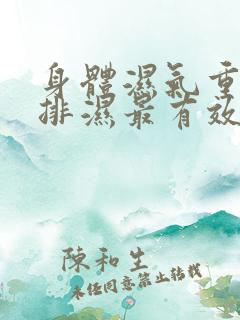 身體濕氣重
排濕最有效
陳和生
未經同意禁止轉載